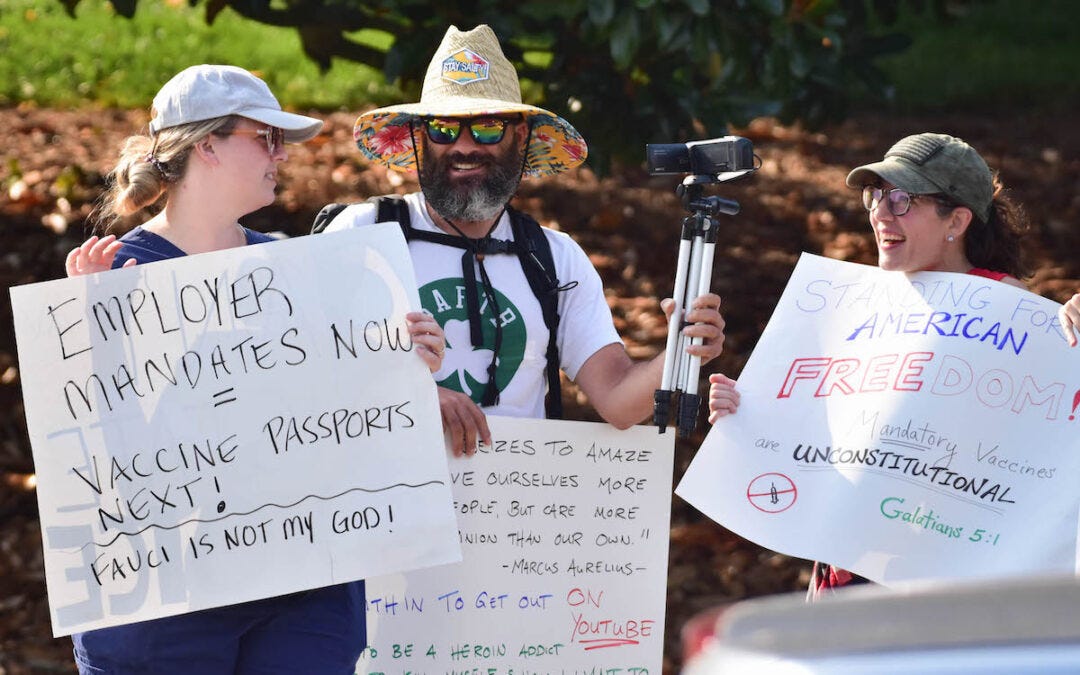 STAY SALTY
EMPLOYER
MANDATES NOW
=
VACCINE PASSPORTS
NEXT!
FAUCI IS NOT MY GOD!
EIZES TO AMAZE
VE OURSELVES MORE
EOPLE, BUT CARE MORE
INION THAN OUR OWN."
-MARCUS AURELIUS-
TO GET OUT ON
YOUTUBE
BE A HEROIN ADDICT
STANDING FOR
AMERICAN
FREEDOM!
Mandatory Vaccines
are UNCONSTITUTIONAL
Galatians 5:1